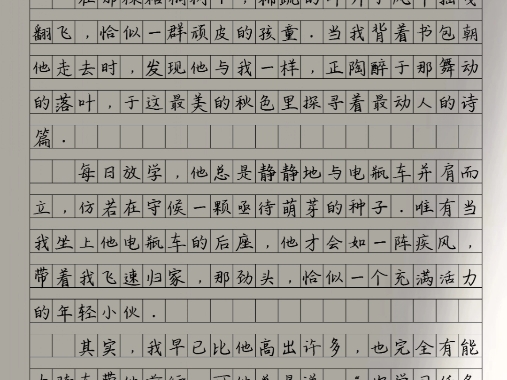 在那棵梧桐树下，稀疏的叶片于风中摇曳
翻飞，恰似一群顽皮的孩童．当我背着书包朝
他走去时，发现他与我一样，正陶醉于那舞动
的落叶，于这最美的秋色里探寻着最动人的诗
篇．
每日放学，他总是静静地与电瓶车并肩而
立，仿若在守候一颗亟待萌芽的种子．唯有当
我坐上他电瓶车的后座，他才会如一阵疾风，
带着我飞速归家，那劲头，恰似一个充满活力
的年轻小伙．
其实，我早已比他高出许多，也完全有能